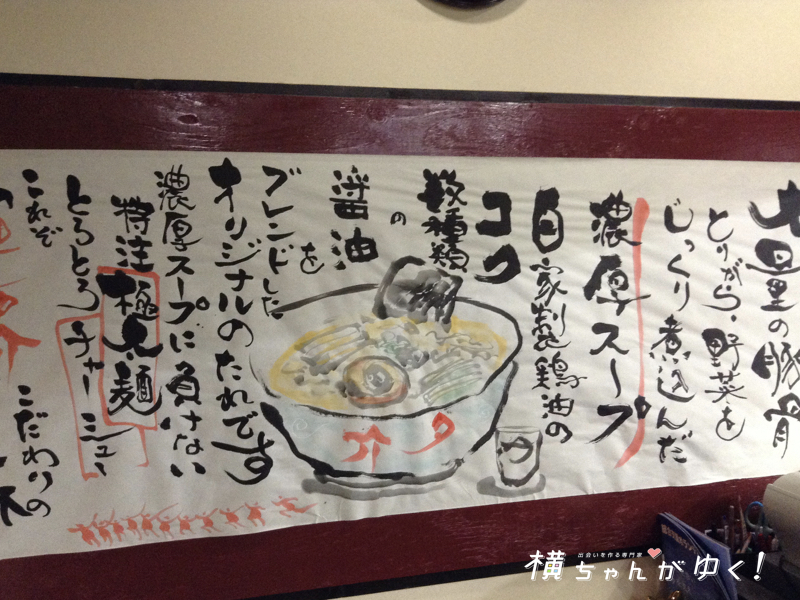 大量の豚骨
とりがら・野菜を
じっくり煮込んだ
濃厚スープ
自家製鶏油の
コク
数種類
の
醤油
を
ブレンドした
オリジナルのたれです
濃厚スープに負けない
特注極太麺
とろとろチャーシュー
これぞ
こだわりの
出会いを作る専門家
横ちゃんがゆく!